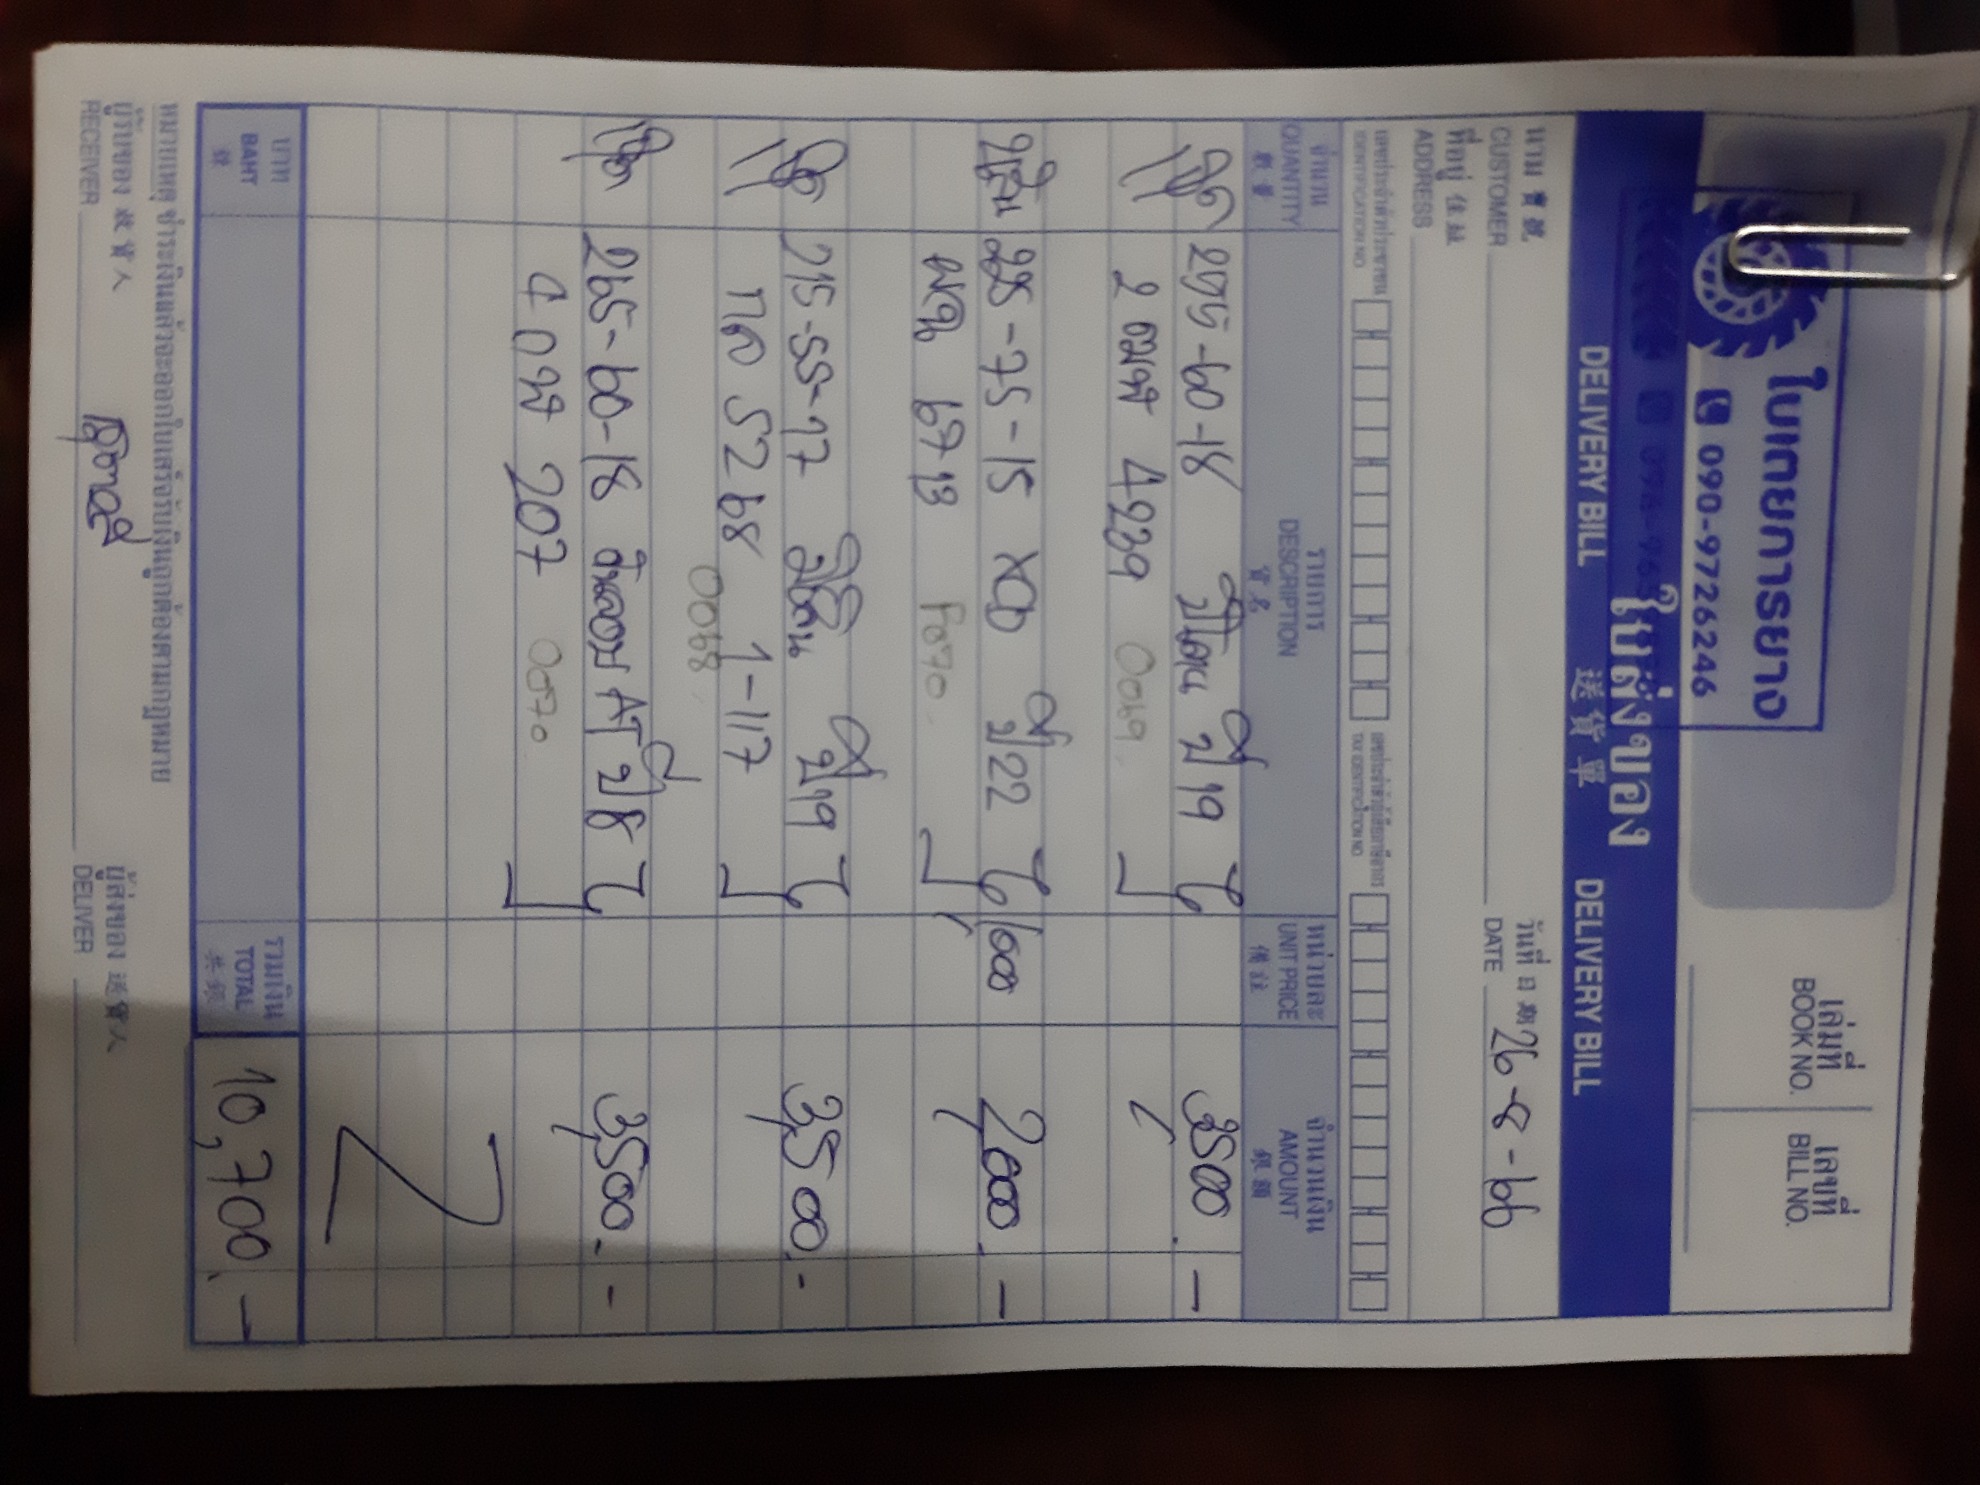 ใบเตยการยาง
090-9726246
เล่มที่ เลขที่
BOOK NO. BILL NO.
ใบส่งของ
DELIVERY BILL 送貨單 DELIVERY BILL
นาม 寶號 วันที่ 日期 26-8-66
CUSTOMER DATE
ที่อยู่ 住址
ADDRESS
เลขประจำตัวประชาชน เลขประจำตัวผู้เสียภาษีอากร
IDENTIFICATION NO TAX IDENTIFICATION NO
จำนวน รายการ หน่วยละ จำนวนเงิน
QUANTITY DESCRIPTION UNIT PRICE AMOUNT
數量 貨名 價註 銀額
265-60-18 ปี 19 3500.-
4939 0069
2เส้น 225-75-15 XCD ปี 22 1,000 2,000.-
6713 Fo70.
215-55-17 มิชลิน ปี 19 3,500.-
กด 5268 1-117
0068.
265-60-18 ดันลอป AT ปี 18 3,500.-
207 0070
บาท รวมเงิน 10,700.-
BAHT TOTAL
銖 共銀
หมายเหตุ ชำระเงินแล้วจะออกใบเสร็จรับเงินถูกต้องตามกฎหมาย
ผู้รับของ 收貨人 ผู้ส่งของ 送貨人
RECEIVER DELIVER